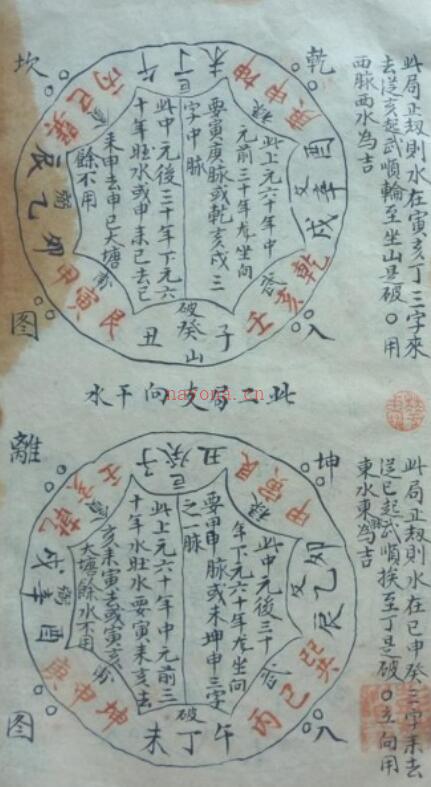 此局正規則水在寅亥丁三字來
去從亥起武順輪至坐山是破〇用
西脉西水為吉
乾
坎
入
图
未 巨丁 午
丙 巳 巽
辰 乙 卯
甲 寅 艮
丑 破癸山 子
壬 亥 乾
戌 辛 酉
庚 申 坤
此上元六十年中
元前三十年龙坐向
要寅庚脉或乾亥戌三
字中脉
此中元後三十年下元六
十年旺水或申未巳去巳
未申去申巳大塘
餘不用
此二局支向干水
nayona.cn
此局正規則水在巳申癸三字来去
從巳起武順挨至丁是破〇立向用
東水東脉為吉
坤
離
入
图
丑 巨癸 子
壬 亥 乾
戌 辛 酉
庚 申 坤
未 破丁 午
丙 巳 巽
辰 乙 卯
甲 寅 艮
此中元後三十
年下元六十年龙坐向
要甲申脉或未坤申三字
之一脉
此上元六十年中元前三
十年水旺水要寅未亥去
亥未寅去或寅亥
大塘餘水不用